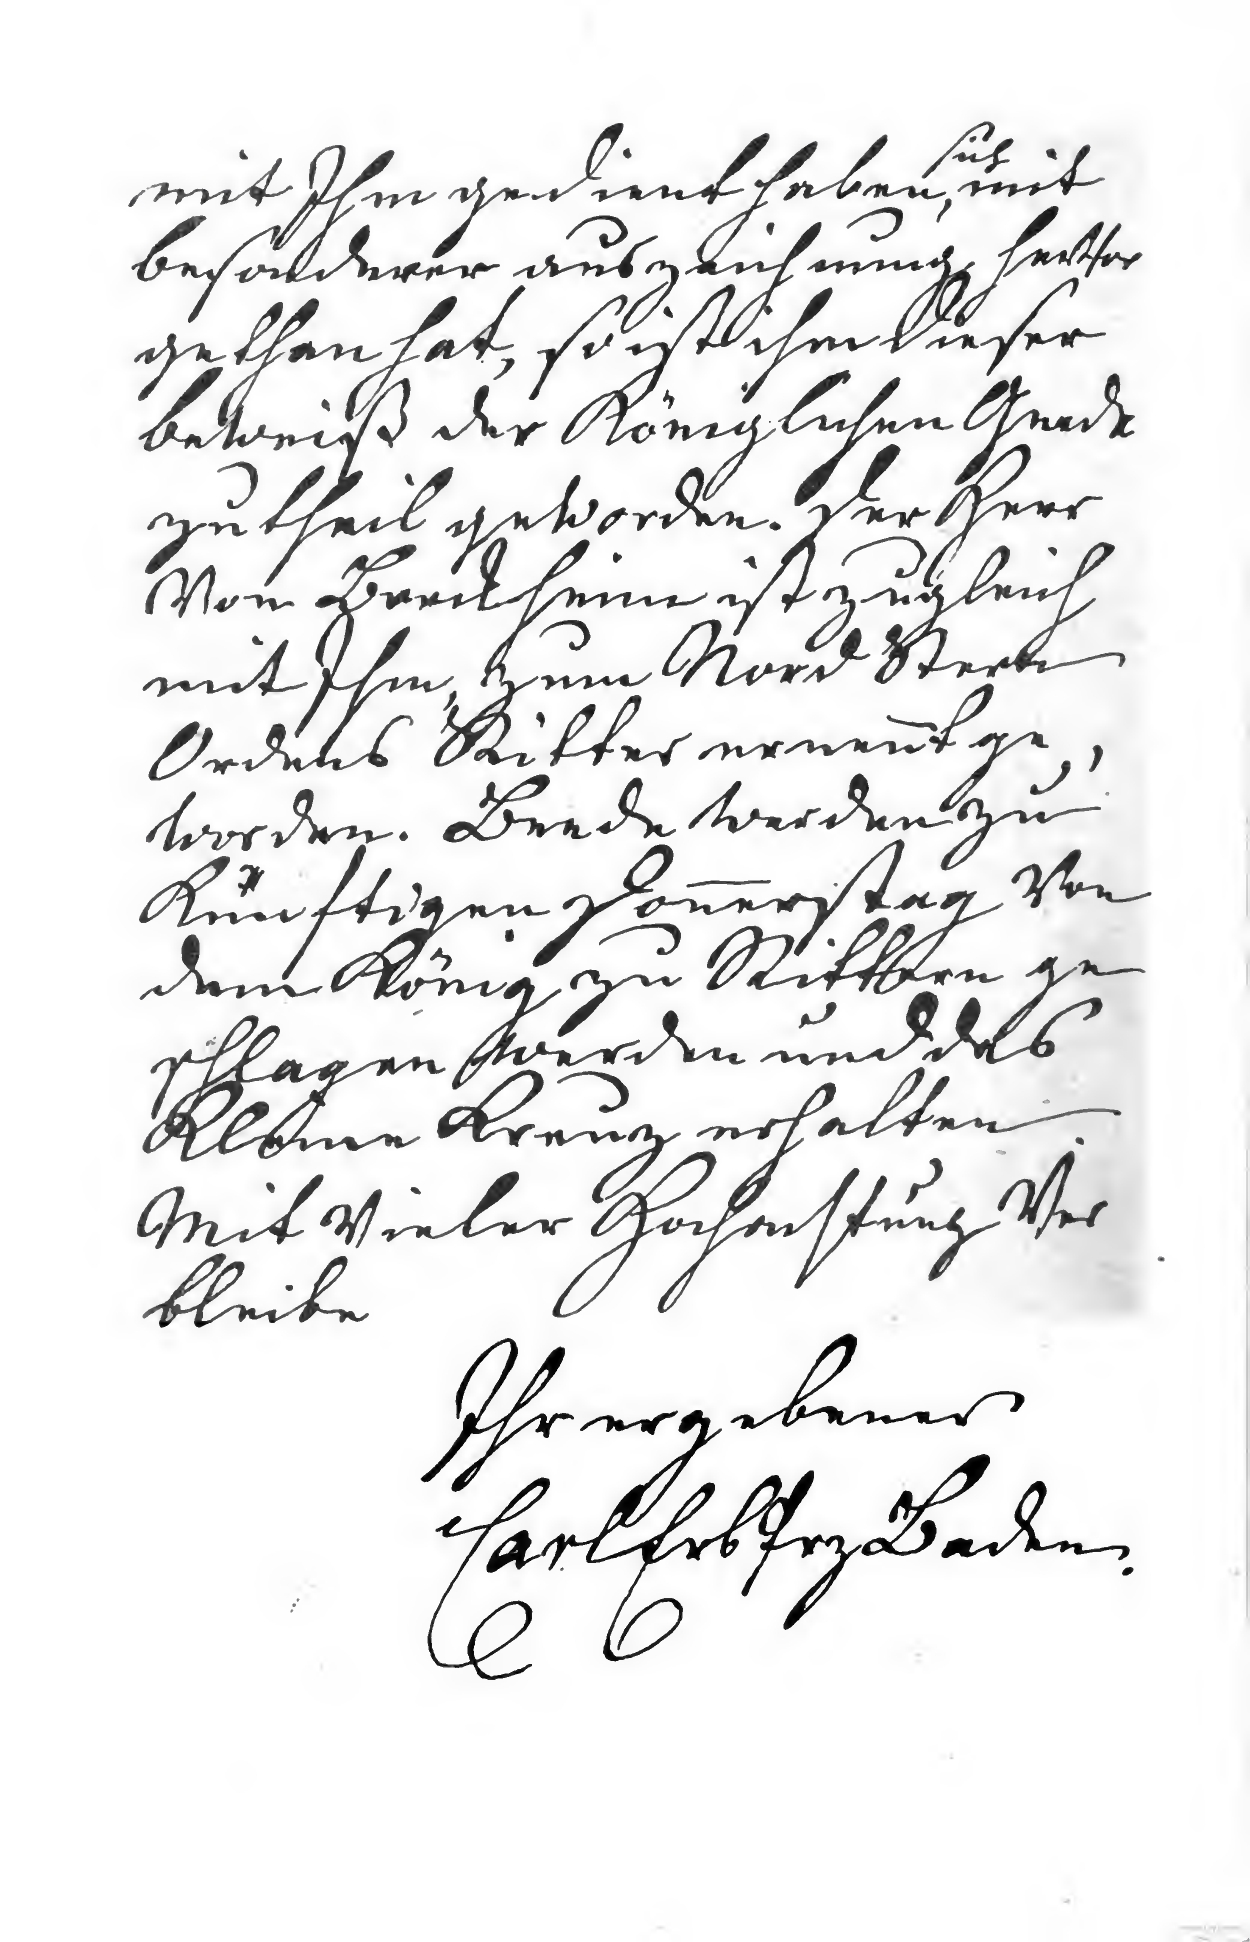 mit Ihm gedient haben, sich mit
besonderer auszeichnung, hervor
gethan hat, so ist ihm dieser
beweiß der Königlichen Gnade
zu theil geworden. Der Herr
Von Berckheim ist zugleich
mit Ihm, zum Nord Stern
Ordens Ritter ernen̅t ge„
worden. Beede werden zu
Künftigen Don̅erstag Von
dem König zu Rittern ge
schlagen werden und das
Kleine Kreuz erhalten
Mit Vieler Hochachtung Ver
bleibe
Ihr ergebener
Carl Erb Prz Baden.